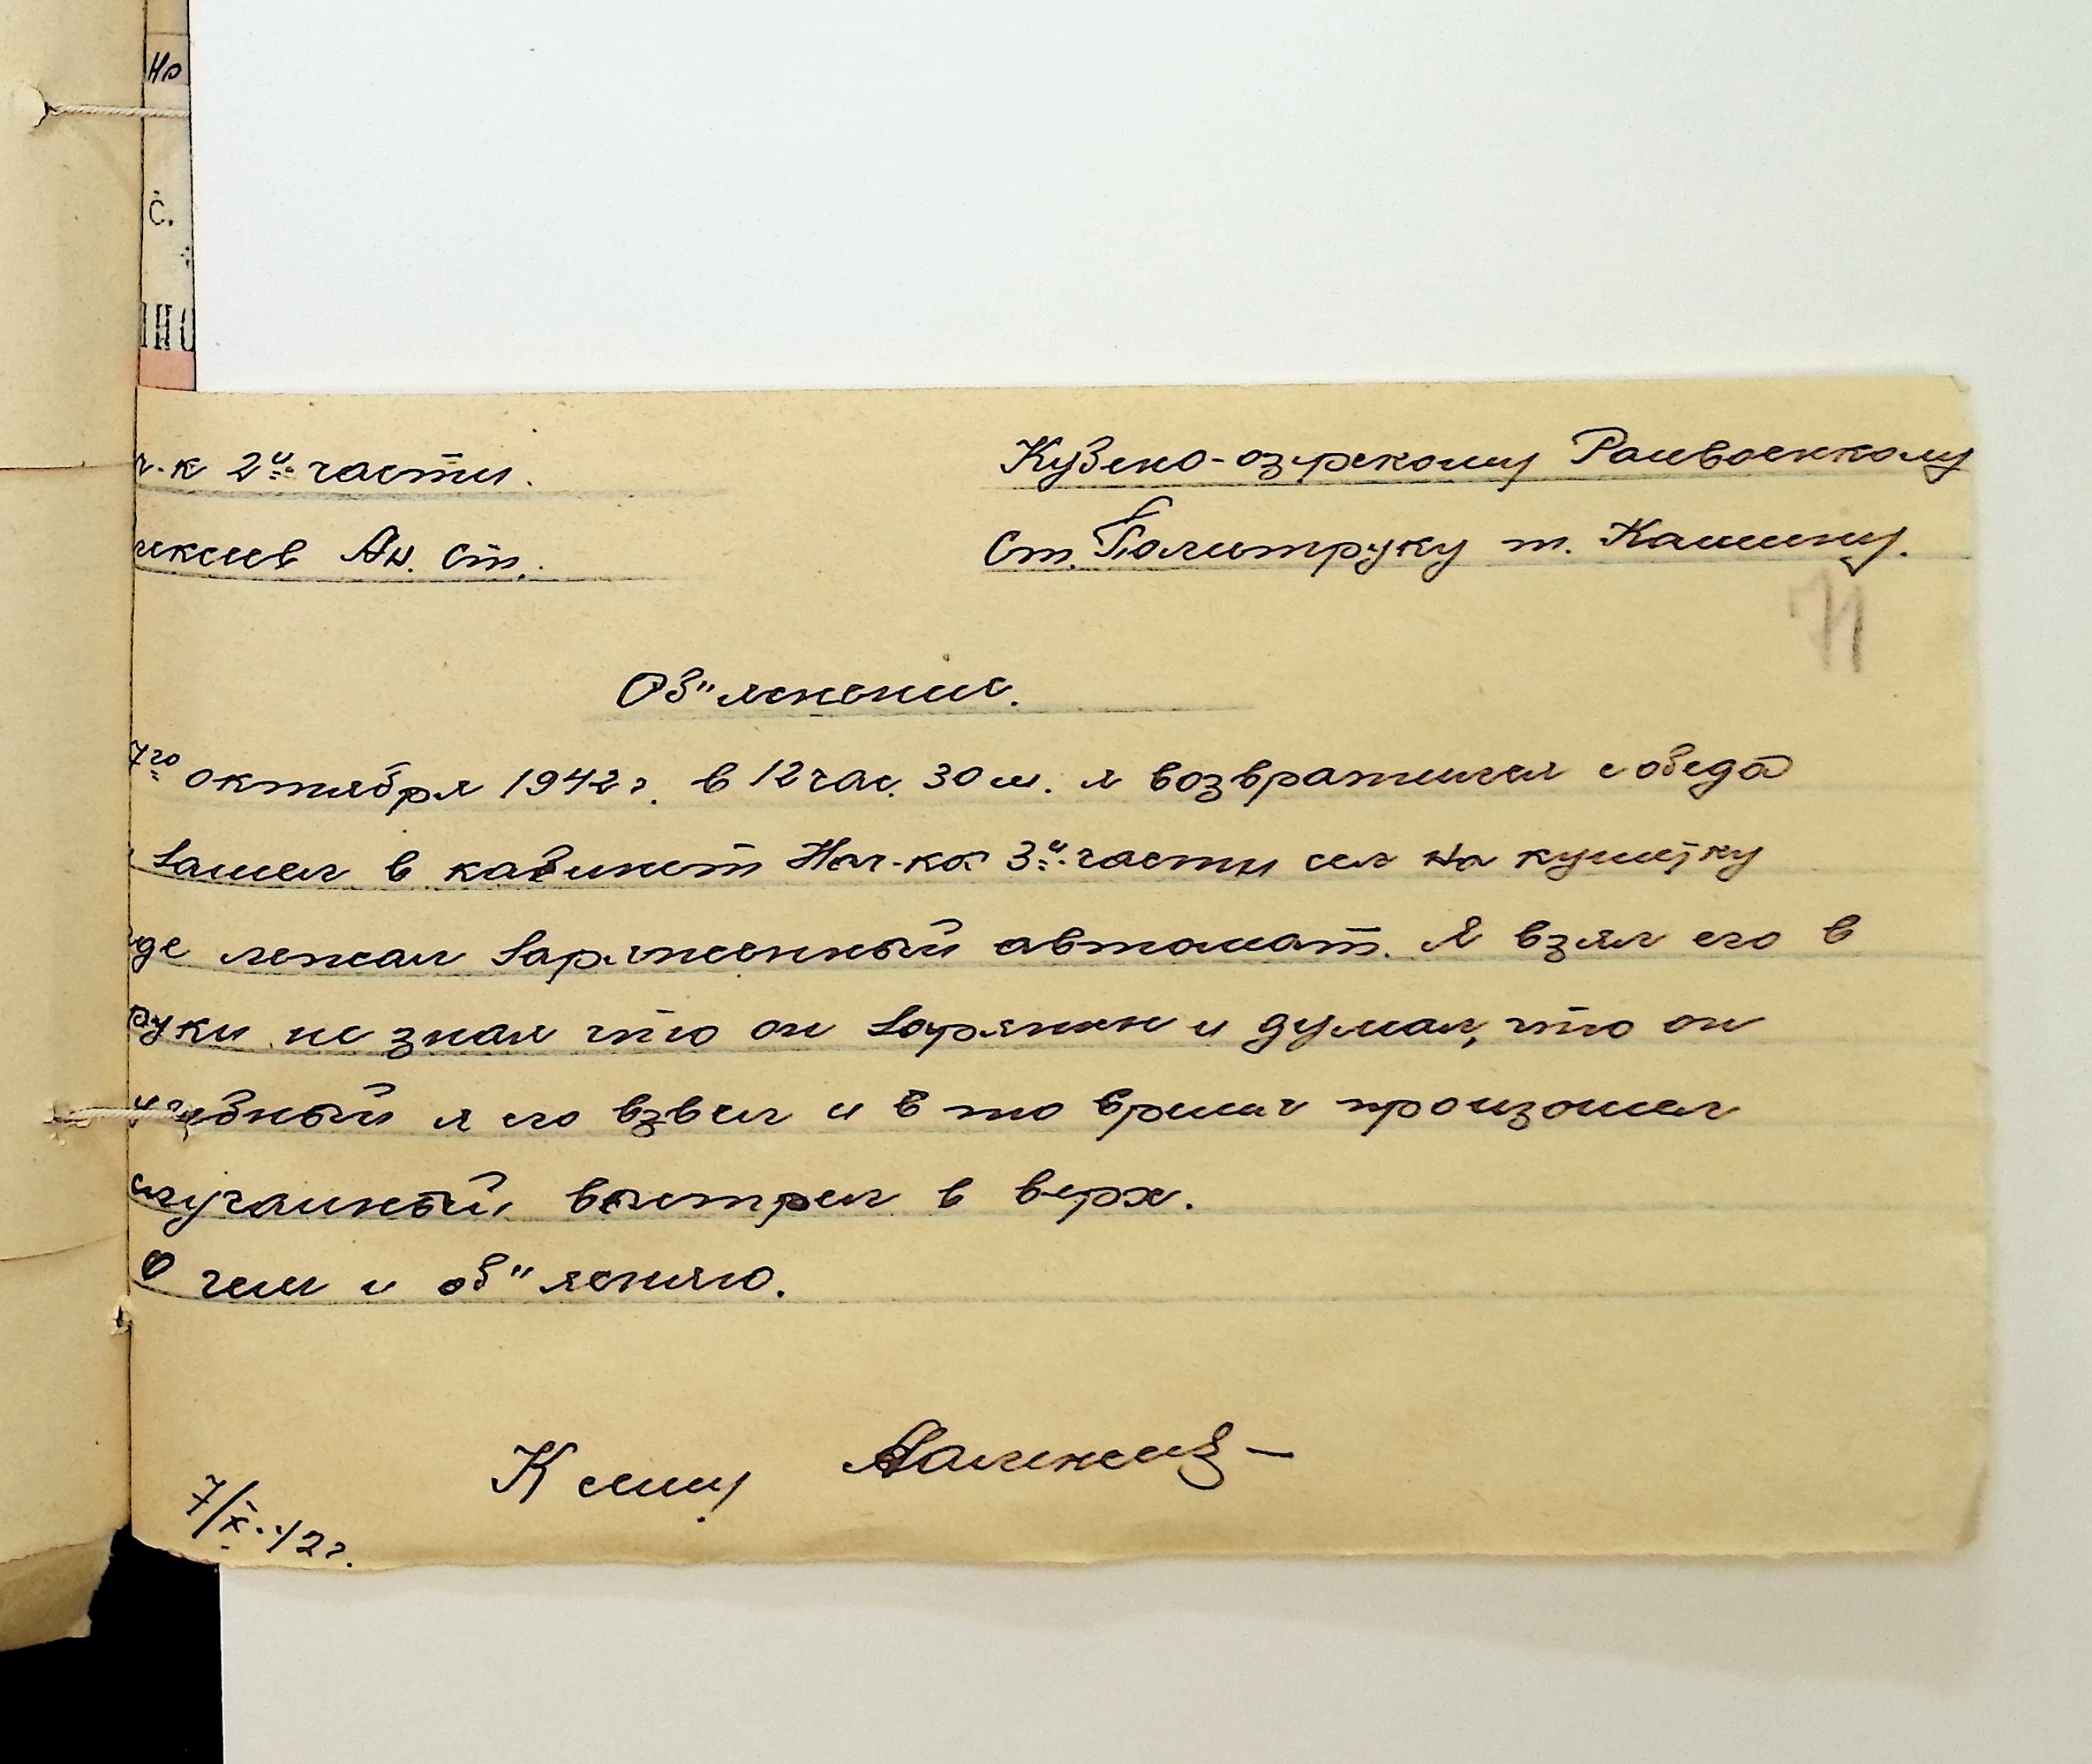 но
с.
ч-к 2й части.
Кузено-озерскому Райвоенкому
лексеев Ан. Ст.
Ст. Политруку т. Кашину.
71
Об"яснение.
7го октября 1942 г. в 12 час. 30 м. я возвратился с обеда
зашел в кабинет Нач-ка 3й части сел на кушетку
где лежал заряженный автомат. Я взял его в
руки не зная что он заряжен и думал, что он
учебный я его взвел и в то время произошел
случайный выстрел в верх.
О чем и об"ясняю.
К сему
7/X-42г.